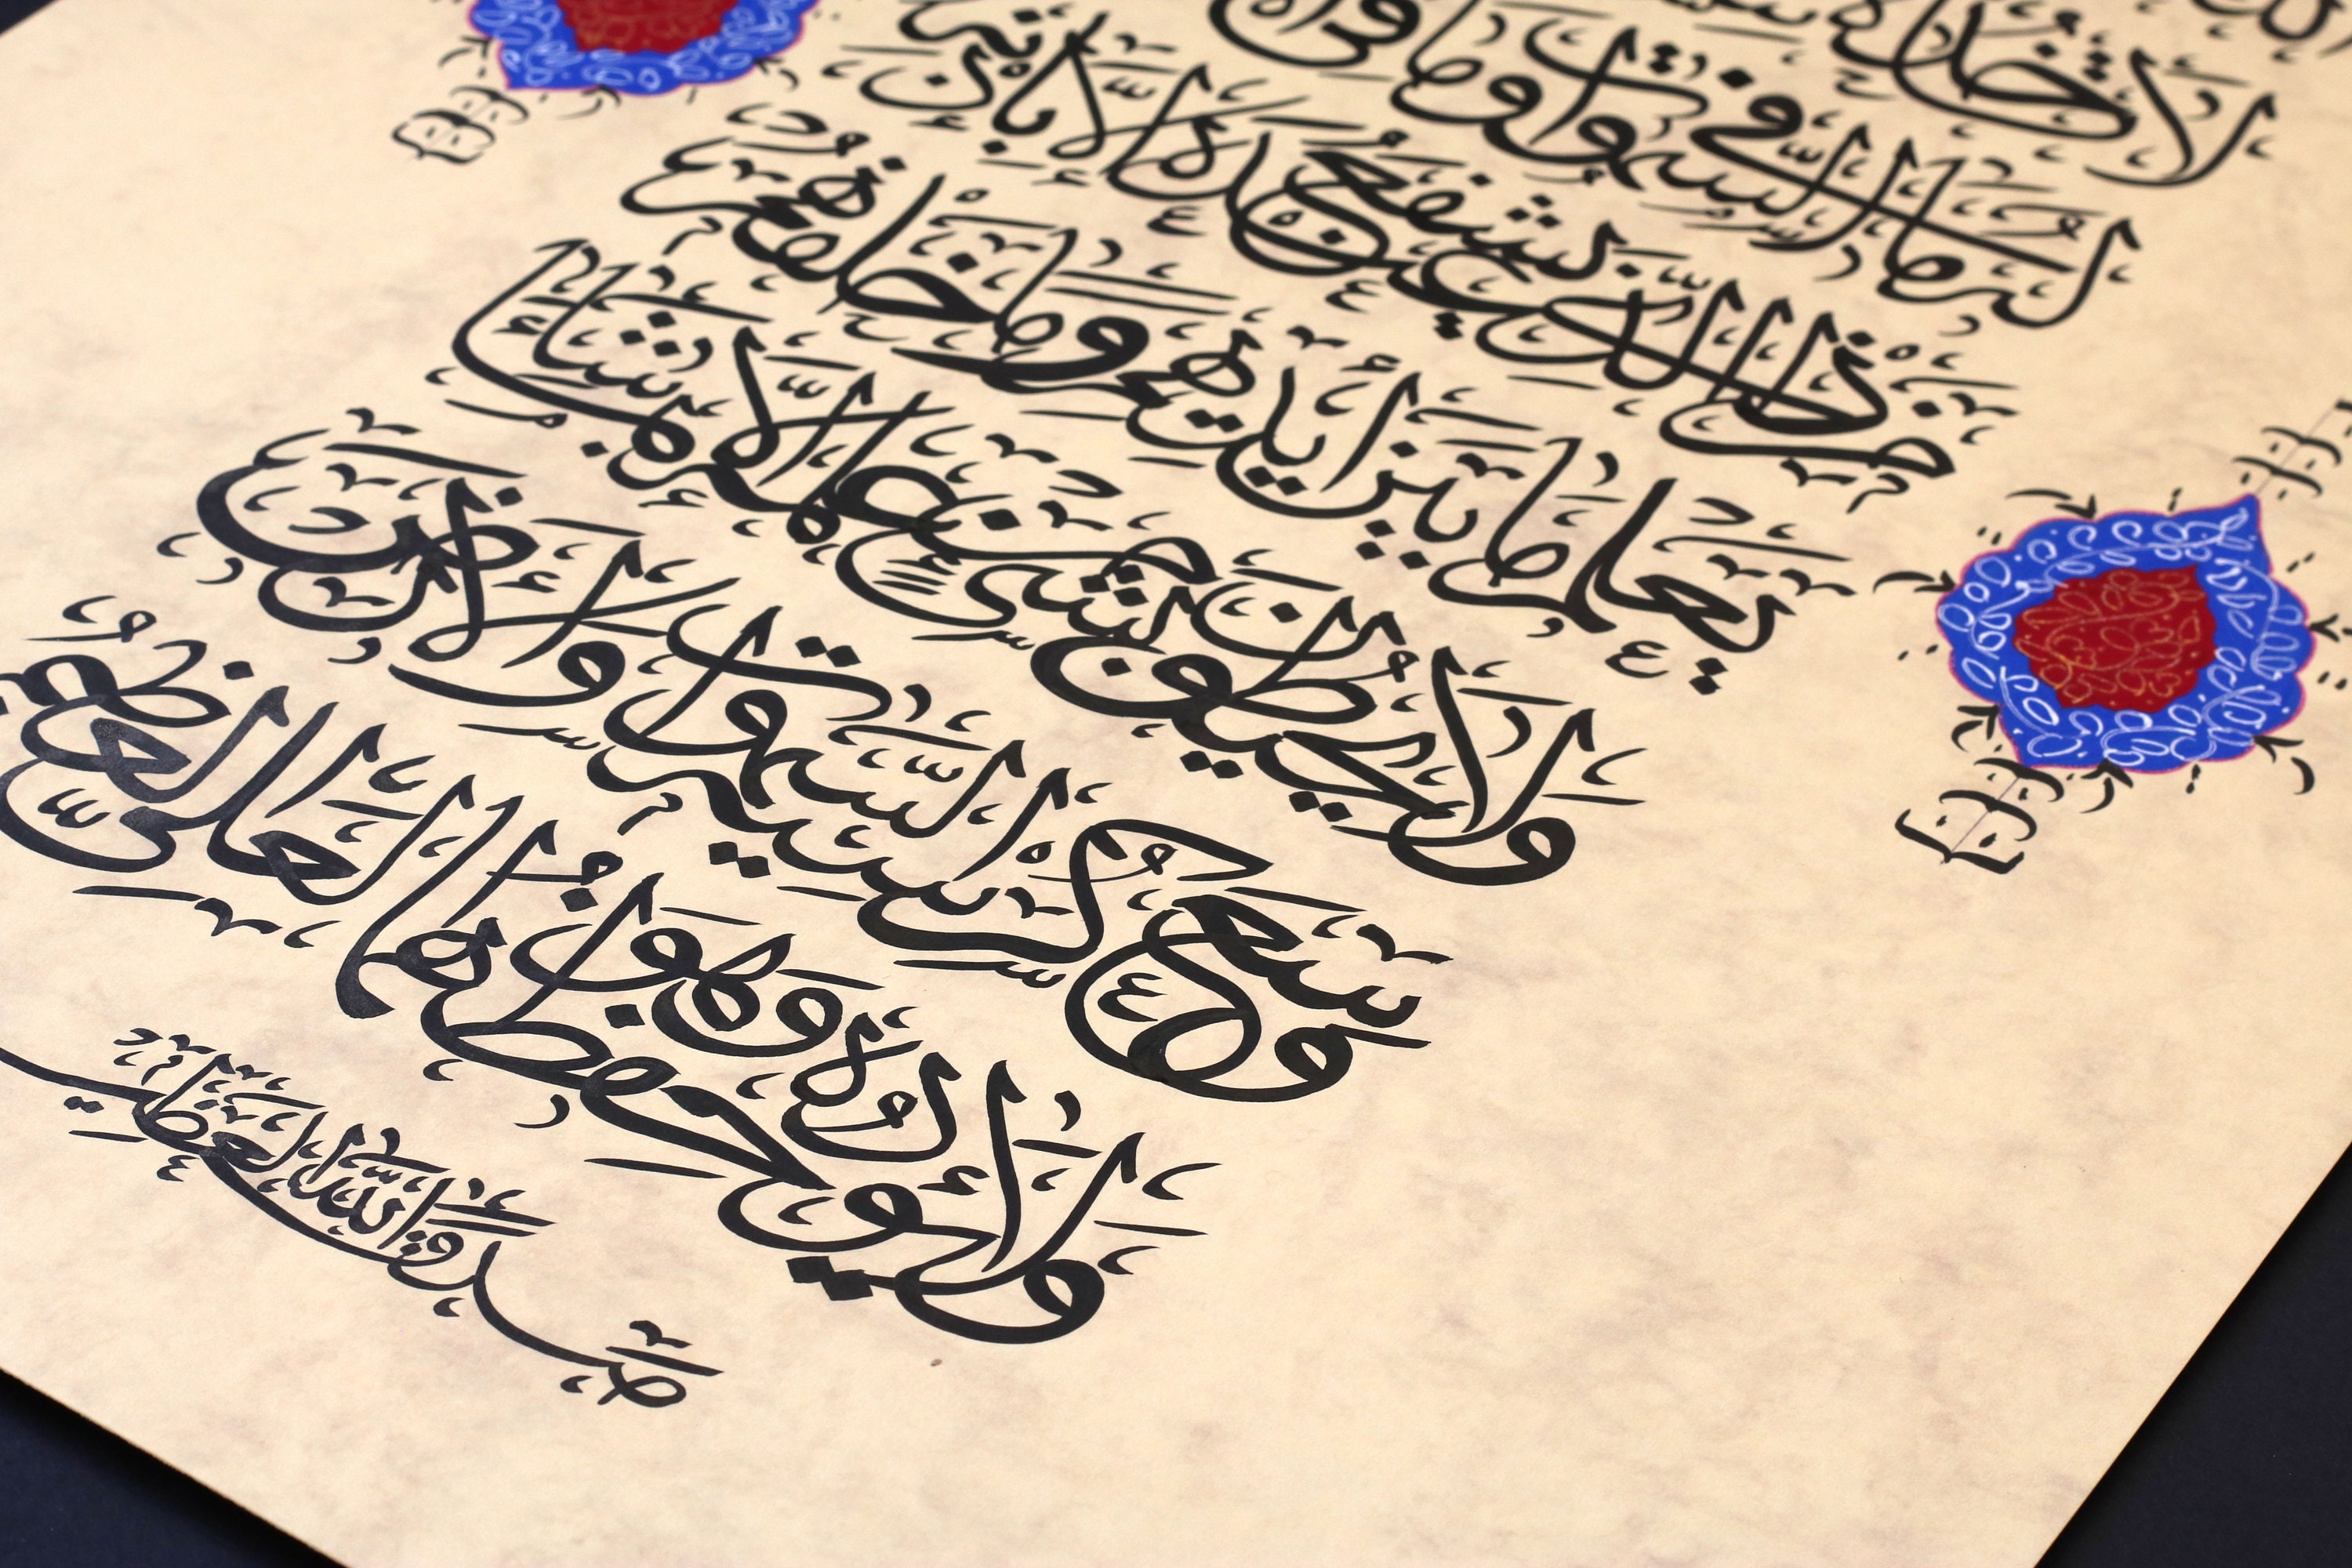 لَا تَأْخُذُهُ
لَهُ مَا فِي السَّمٰوَاتِ وَمَا فِي
مَنْ ذَا الَّذِي يَشْفَعُ عِنْدَهُ إِلَّا بِإِذْنِهِ
يَعْلَمُ مَا بَيْنَ أَيْدِيهِمْ وَمَا خَلْفَهُمْ
وَلَا يُحِيطُونَ بِشَيْءٍ مِنْ عِلْمِهِ إِلَّا بِمَا شَاءَ
وَسِعَ كُرْسِيُّهُ السَّمٰوَاتِ وَالْأَرْضَ
وَلَا يَئُودُهُ حِفْظُهُمَا وَهُوَ الْعَلِيُّ الْعَظِيمُ
صَدَقَ اللّٰهُ الْعَظِيمُ